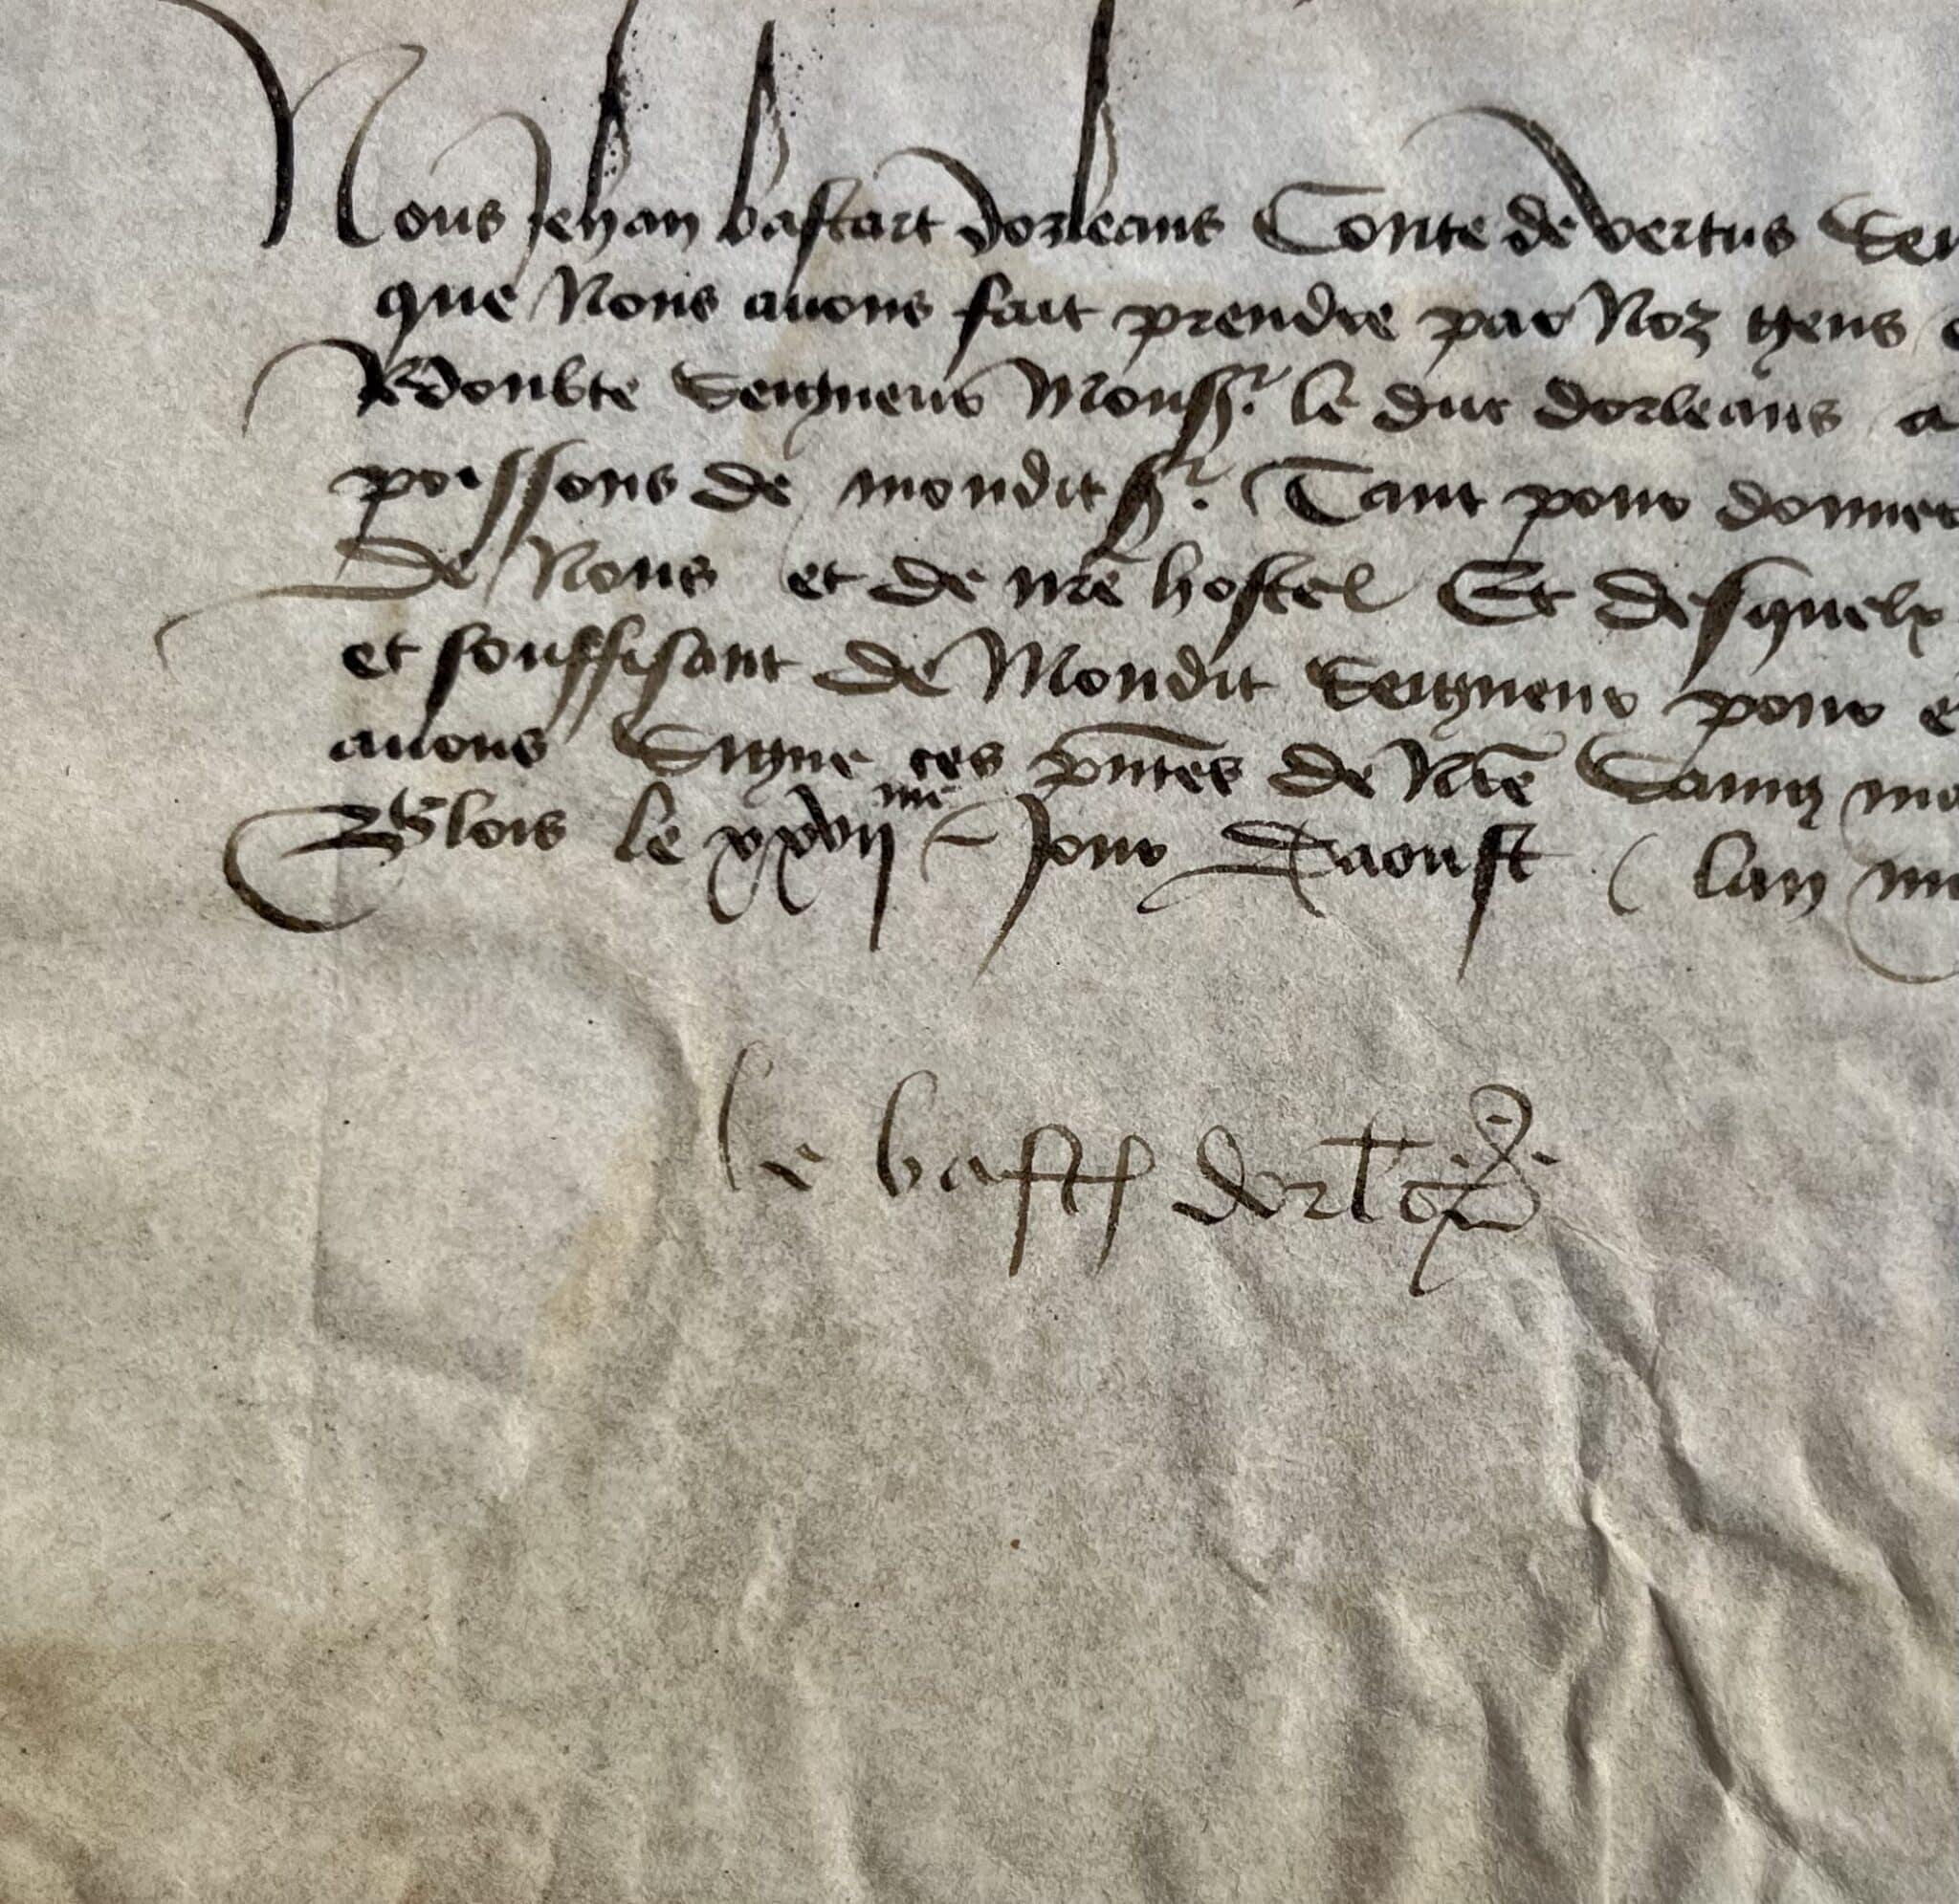 Nous Jehan bastart dorleans Conte de vertus
que Nous auons fait prendre par Noz gens
Redoubte Seigneur Mons^r. le duc dorleans a
poissons de mondit s^r. Tant pour donner
de Nous et de nr̄e hostel Et desquelx
et souffisant de Mondit Seigneur pour
auons Signe ces pn̄tes de Nr̄e Saing
Blois le xxvii^me Jour Daoust lan
le bast dorl